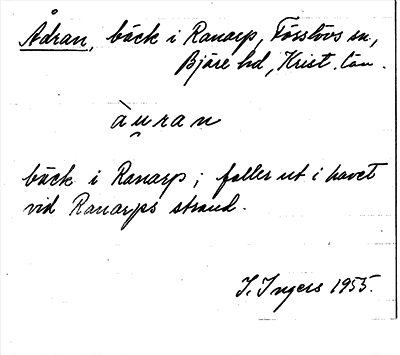 Ådran, bäck i Ranarp, Förslövs sn,
Bjäre hd, Krist. län.
àu̯ran
bäck i Ranarp; faller ut i havet
vid Ranarps strand.
I. Ingers 1955.